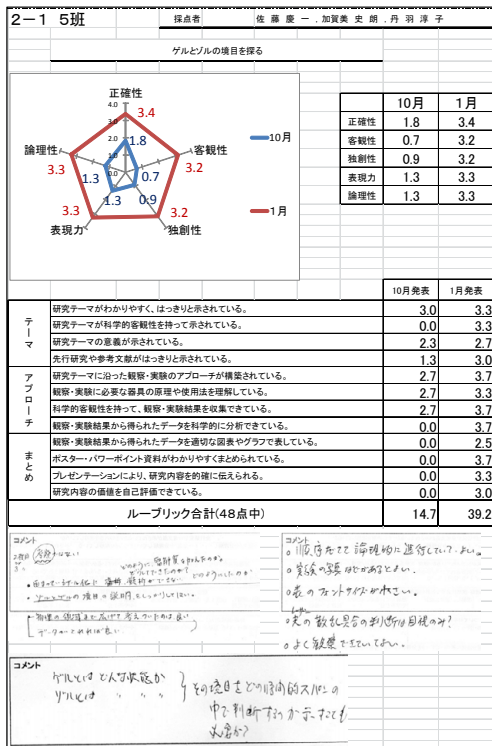 2-1 5班 採点者 佐藤慶一,加賀美史朗,丹羽淳子
ゲルとゾルの境目を探る
正確性
4.0
3.0
2.0
1.0
0.0
3.4
1.8
論理性
客観性
3.3
1.3
0.7
3.2
3.3
1.3
0.9
3.2
表現力
独創性
10月
1月
10月 1月
正確性 1.8 3.4
客観性 0.7 3.2
独創性 0.9 3.2
表現力 1.3 3.3
論理性 1.3 3.3
10月発表 1月発表
テーマ
研究テーマがわかりやすく、はっきりと示されている。 3.0 3.3
研究テーマが科学的客観性を持って示されている。 0.0 3.3
研究テーマの意義が示されている。 2.3 2.7
先行研究や参考文献がはっきりと示されている。 1.3 3.0
アプローチ
研究テーマに沿った観察・実験のアプローチが構築されている。 2.7 3.7
観察・実験に必要な器具の原理や使用法を理解している。 2.7 3.3
科学的客観性を持って、観察・実験結果を収集できている。 2.7 3.7
観察・実験結果から得られたデータを科学的に分析できている。 0.0 3.7
まとめ
観察・実験結果から得られたデータを適切な図表やグラフで表している。 0.0 2.5
ポスター・パワーポイント資料がわかりやすくまとめられている。 0.0 3.7
プレゼンテーションにより、研究内容を的確に伝えられる。 0.0 3.3
研究内容の価値を自己評価できている。 0.0 3.0
ルーブリック合計(48点中) 14.7 39.2
コメント
どのようにしたのか
・ゾルとゲルの境目の説明をしっかりしてほしい。
物理の領域まで広げて考えていたのは良い
コメント
○順序をたてて論理的に進行していてよい。
○実験の写真などがあるとよい。
○表のフォントサイズが小さい。
○光の散乱具合の判断は目視のみ?
○よく観察できていてよい。
コメント
ゲルとはどんな状態か
ゾルとは 〃 〃 〃
その境目をどの時間的スパンの
中で判断するのか示すことも
必要か?